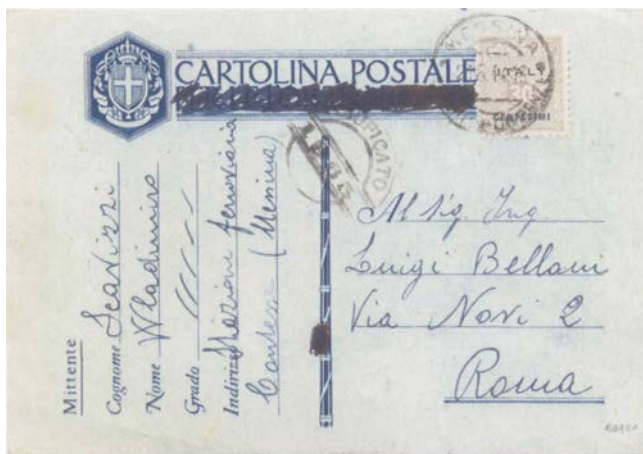 CARTOLINA POSTALE
MESSINA
ITALY
CENTESIMI
Mittente
Cognome Scavizzi
Nome Wladimiro
Grado
Indirizzo Stazione ferroviaria
Contesse (Messina)
Al Sig. Ing.
Luigi Bellani
Via Novi 2
Roma